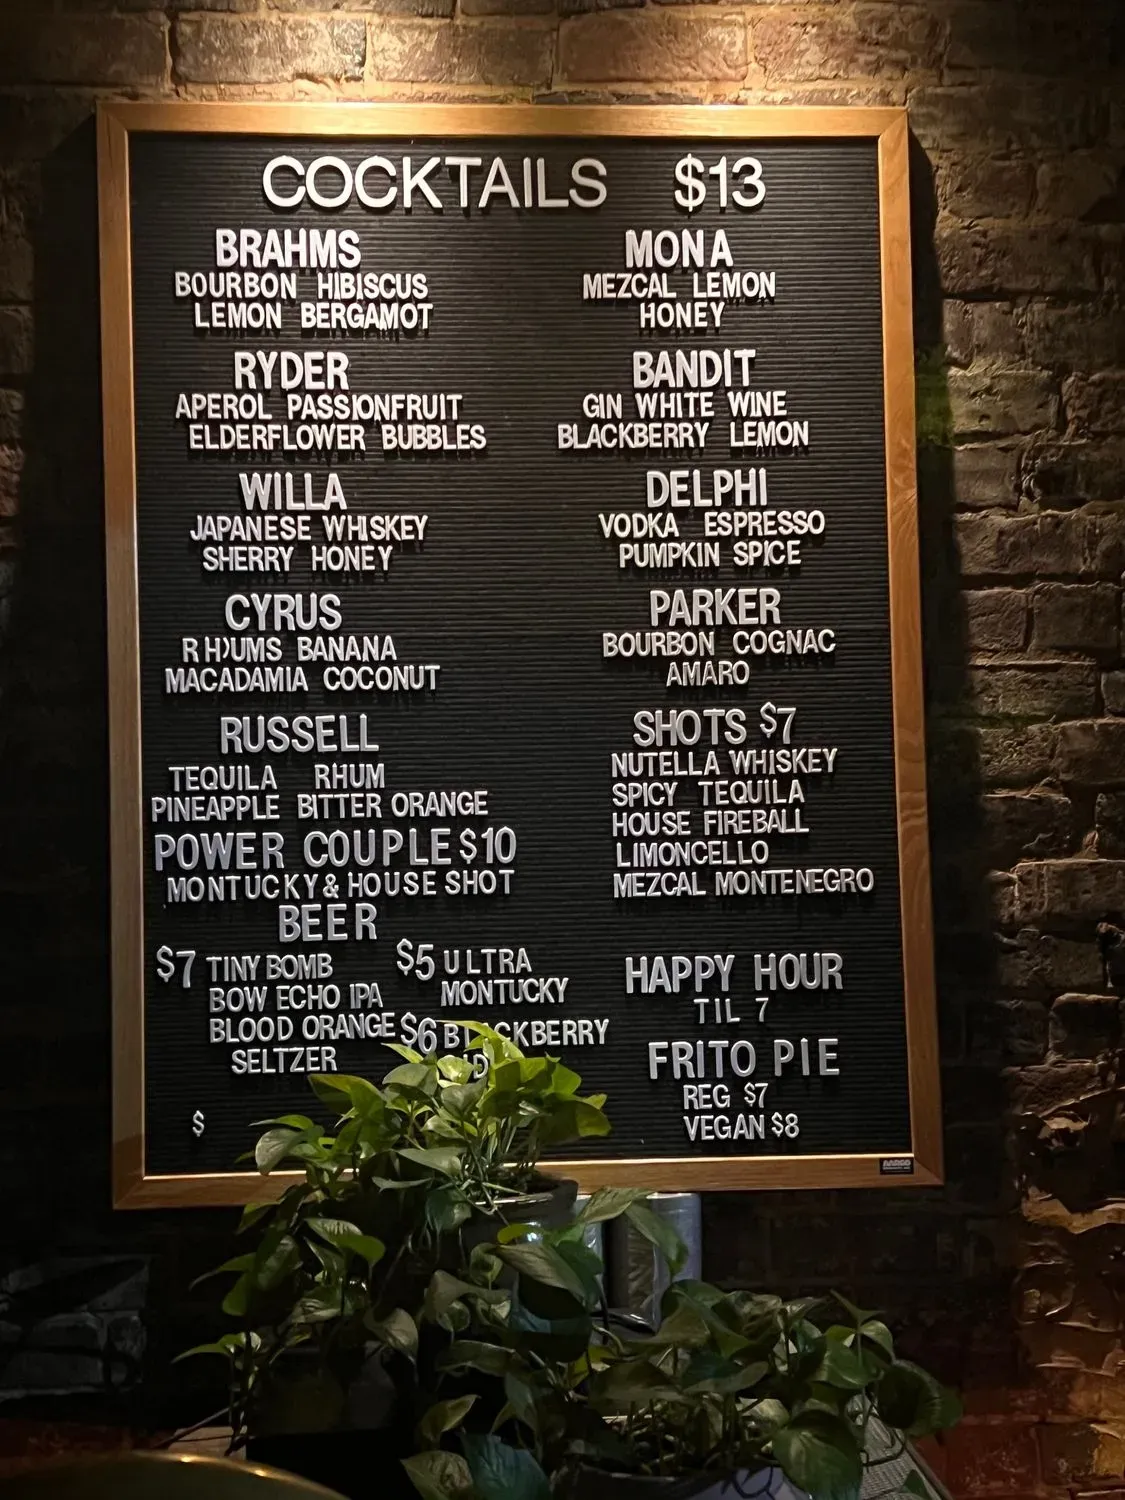 COCKTAILS $13
BRAHMS
BOURBON HIBISCUS
LEMON BERGAMOT
RYDER
APEROL PASSIONFRUIT
ELDERFLOWER BUBBLES
WILLA
JAPANESE WHISKEY
SHERRY HONEY
CYRUS
RH)UMS BANANA
MACADAMIA COCONUT
RUSSELL
TEQUILA RHUM
PINEAPPLE BITTER ORANGE
POWER COUPLE $10
MONTUCKY & HOUSE SHOT
BEER
$7 TINY BOMB
BOW ECHO IPA
BLOOD ORANGE
SELTZER
$5 ULTRA
MONTUCKY
$6
$
MONA
MEZCAL LEMON
HONEY
BANDIT
GIN WHITE WINE
BLACKBERRY LEMON
DELPHI
VODKA ESPRESSO
PUMPKIN SPICE
PARKER
BOURBON COGNAC
AMARO
SHOTS $7
NUTELLA WHISKEY
SPICY TEQUILA
HOUSE FIREBALL
LIMONCELLO
MEZCAL MONTENEGRO
HAPPY HOUR
TIL 7
FRITO PIE
REG $7
VEGAN $8